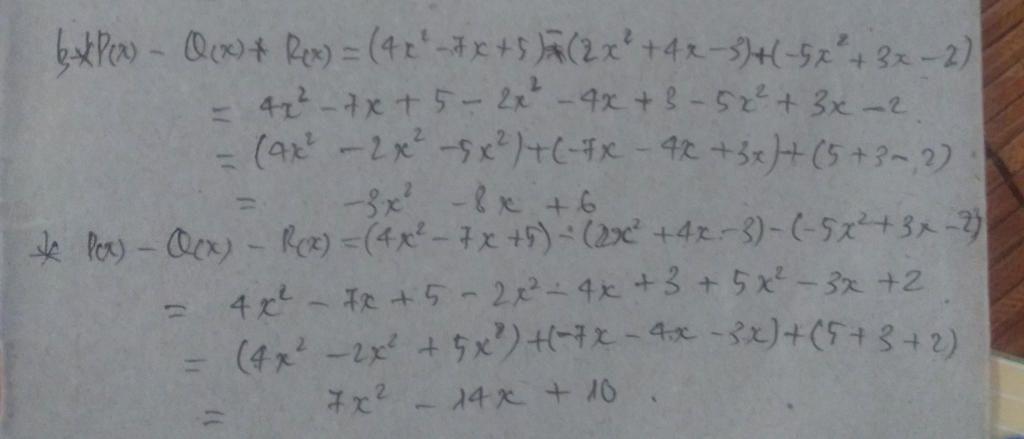 b, * P(x) - Q(x) + R(x) = (4x² - 7x + 5) - (2x² + 4x - 3) + (-5x² + 3x - 2)
= 4x² - 7x + 5 - 2x² - 4x + 3 - 5x² + 3x - 2
= (4x² - 2x² - 5x²) + (-7x - 4x + 3x) + (5 + 3 - 2)
= -3x² - 8x + 6
* P(x) - Q(x) - R(x) = (4x² - 7x + 5) - (2x² + 4x - 3) - (-5x² + 3x - 2)
= 4x² - 7x + 5 - 2x² - 4x + 3 + 5x² - 3x + 2
= (4x² - 2x² + 5x²) + (-7x - 4x - 3x) + (5 + 3 + 2)
= 7x² - 14x + 10 .